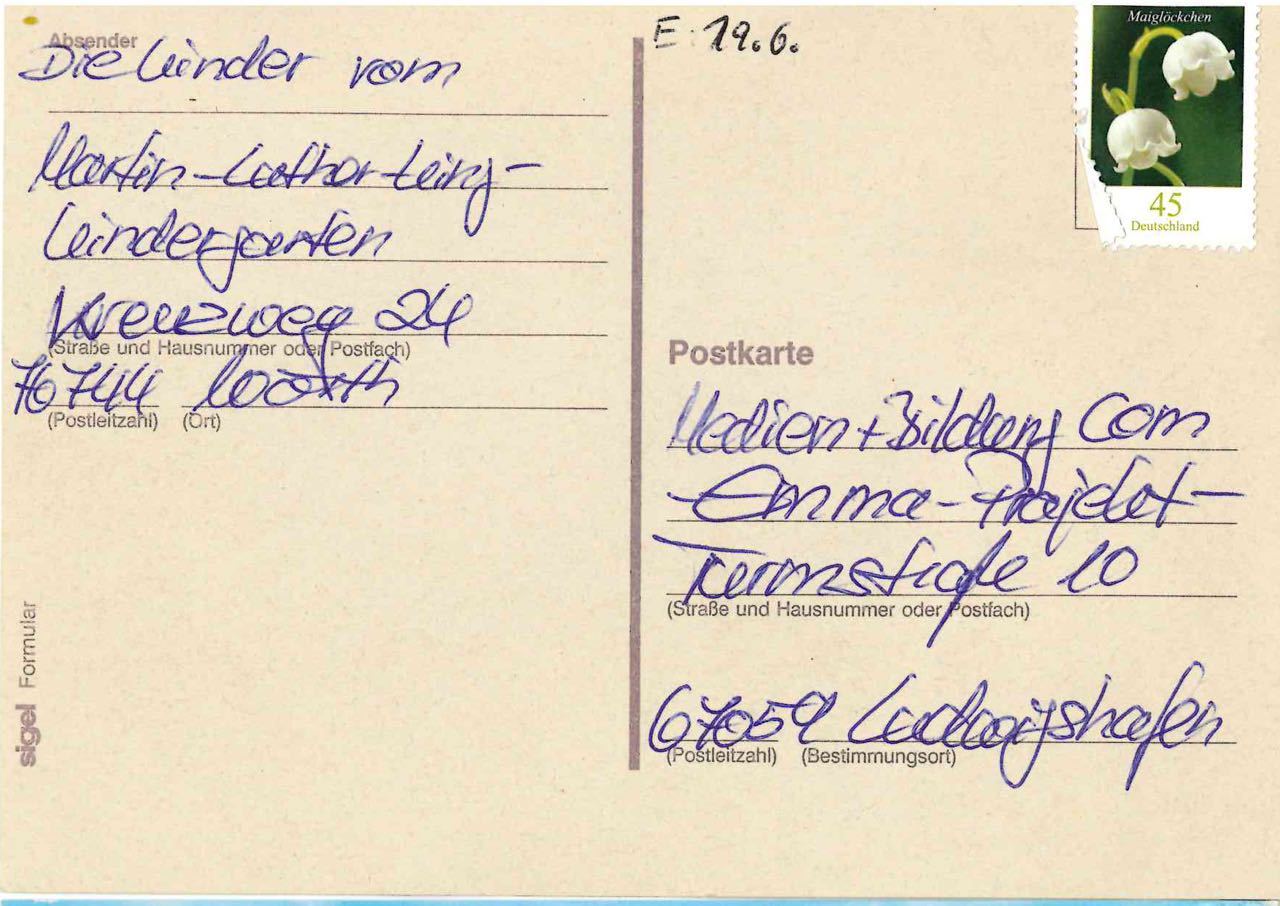 Absender
Die Kinder vom
Martin-Luther-King-
Kindergarten
Kreuzweg 24
(Straße und Hausnummer oder Postfach)
76744 Wörth
(Postleitzahl) (Ort)
sigel Formular
E: 19.6.
Maiglöckchen
45
Deutschland
Postkarte
Medien+Bildung Com
-Emma-Projekt-
Turmstraße 10
(Straße und Hausnummer oder Postfach)
67059 Ludwigshafen
(Postleitzahl) (Bestimmungsort)